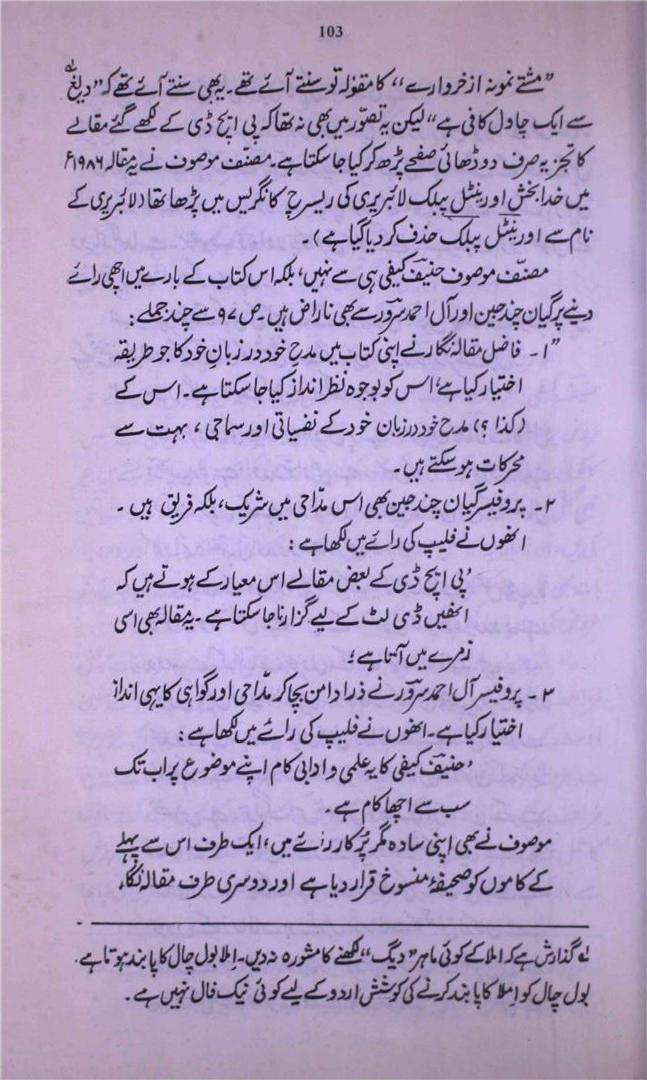 103
”مشتے نمونہ از خروارے“ کا مقولہ تو سنتے آئے تھے۔ یہ بھی سنتے آئے تھے کہ ”دیغ لہ
سے ایک چاول کافی ہے“ لیکن یہ تصوّر میں بھی نہ تھا کہ پی ایچ ڈی کے لکھے گئے مقالے
کا تجزیہ صرف دو ڈھائی صفحے پڑھ کر کیا جا سکتا ہے۔ مصنّف موصوف نے یہ مقالہ ۱۹۸۶ء
میں خدا بخش اورینٹل پبلک لائبریری کی ریسرچ کانگریس میں پڑھا تھا (لائبریری کے
نام سے اورینٹل پبلک حذف کر دیا گیا ہے)۔
مصنّف موصوف حنیف کیفی ہی سے نہیں، بلکہ اس کتاب کے بارے میں اچھی رائے
دینے پر گیان چند جین اور آل احمد سرور سے بھی ناراض ہیں۔ ص ۹۷ سے چند جملے:
”۱۔ فاضل مقالہ نگار نے اپنی کتاب میں مدحِ خود در زبانِ خود کا جو طریقہ
اختیار کیا ہے، اس کو بوجوہ نظر انداز کیا جا سکتا ہے۔ اس کے
(کذا ؟) مدح خود در زبان خود کے نفسیاتی اور سماجی، بہت سے
محرکات ہو سکتے ہیں۔
۲۔ پروفیسر گیان چند جین بھی اس مدّاحی میں شریک، بلکہ فریق ہیں۔
انھوں نے فلیپ کی رائے میں لکھا ہے:
’پی ایچ ڈی کے بعض مقالے اس معیار کے ہوتے ہیں کہ
انھیں ڈی لٹ کے لیے گزارنا جا سکتا ہے۔ یہ مقالہ بھی اسی
زمرے میں آتا ہے؛
۳۔ پروفیسر آل احمد سرور نے ذرا دامن بچا کر مدّاحی اور گواہی کا یہی انداز
اختیار کیا ہے۔ انھوں نے فلیپ کی رائے میں لکھا ہے:
’حنیف کیفی کا یہ علمی و ادابی کام اپنے موضوع پر اب تک
سب سے اچھا کام ہے۔
موصوف نے بھی اپنی سادہ مگر پُرکار رائے میں، ایک طرف اس سے پہلے
کے کاموں کو صحیفۂ منسوخ قرار دیا ہے اور دوسری طرف مقالہ نگار،
لہ گذارش ہے کہ املا کے کوئی ماہر ”دیگ“ لکھنے کا مشورہ نہ دیں۔ اِملا بول چال کا پابند ہوتا ہے۔
بول چال کو اِملا کا پابند کرنے کی کوشش اردو کے لیے کوئی نیک فال نہیں ہے۔